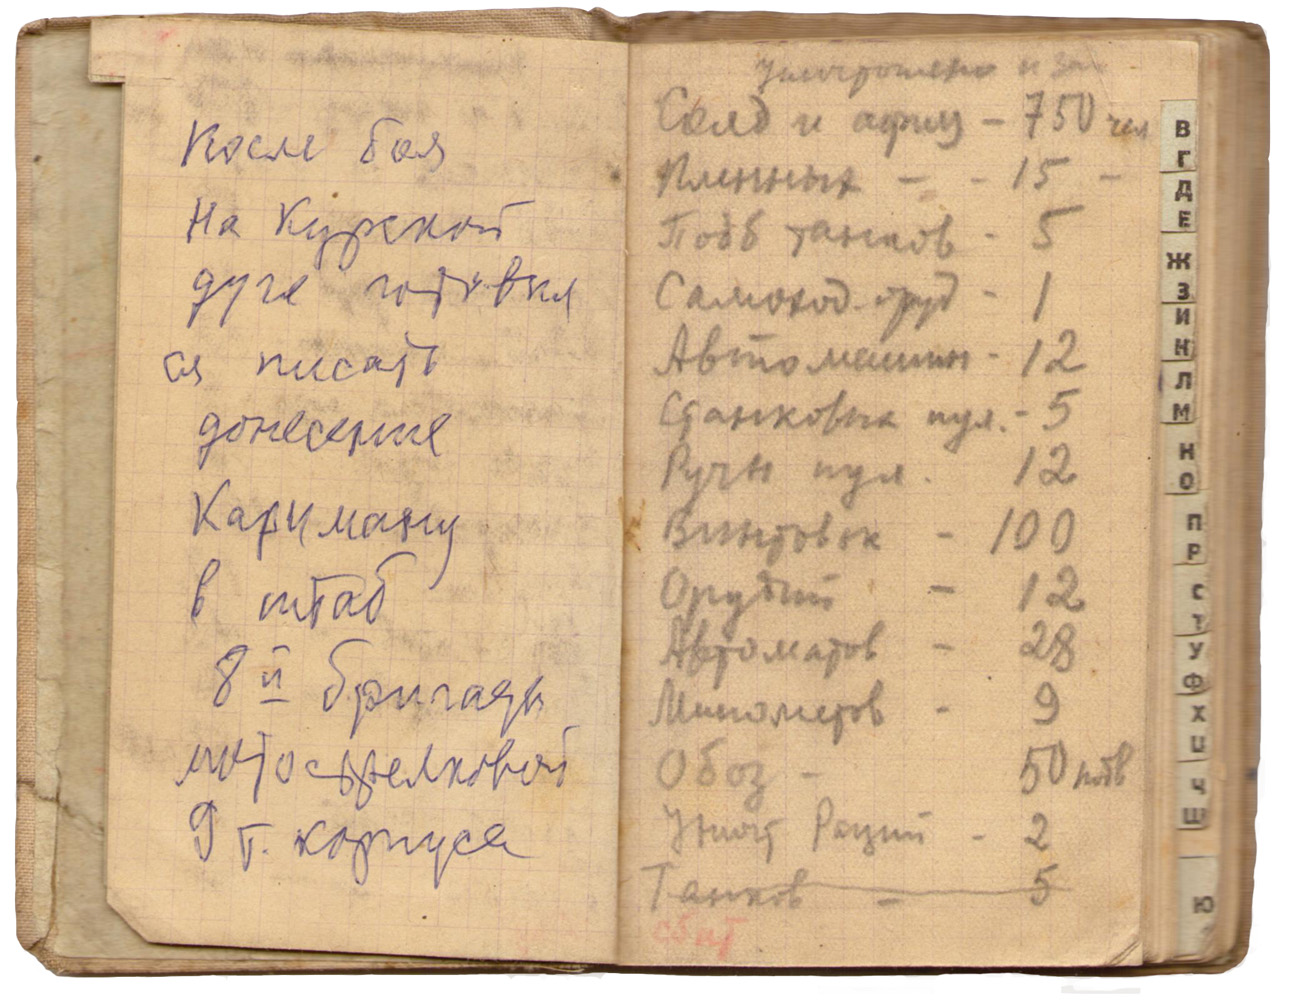 После боя
На Курской
дуге готовил
ся писать
донесение
Кариману
в штаб
8й бригады
мотострелковой
9 т. корпуса
Уничтожено и за
Солд и офиц – 750 чел
Пленных – - 15 –
Подб танков - 5
Самоход. оруд - 1
Автомашин - 12
Станковых пул. - 5
Ручн пул. 12
Винтовок - 100
Орудий - 12
Автоматов - 28
Минометов - 9
Обоз - 50 подв
Уничт Раций - 2
Танков - 5
сбит
В
Г
Д
Е
Ж
З
И
К
Л
М
Н
О
П
Р
С
Т
У
Ф
Х
Ц
Ч
Ш
Ю